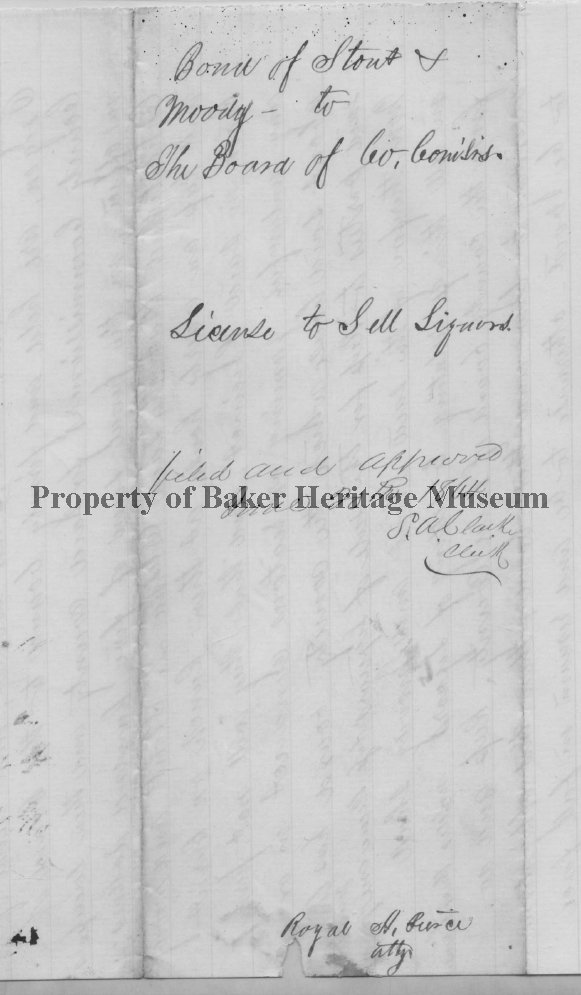 Bond of Stout &
Moody - to
The Board of Co, Comisrs.
License to Sell Liquors.
filed and approved
Property of Baker Heritage Museum
June 1864
S. A. Clarke
Clerk
Royal A. Pierce
atty.